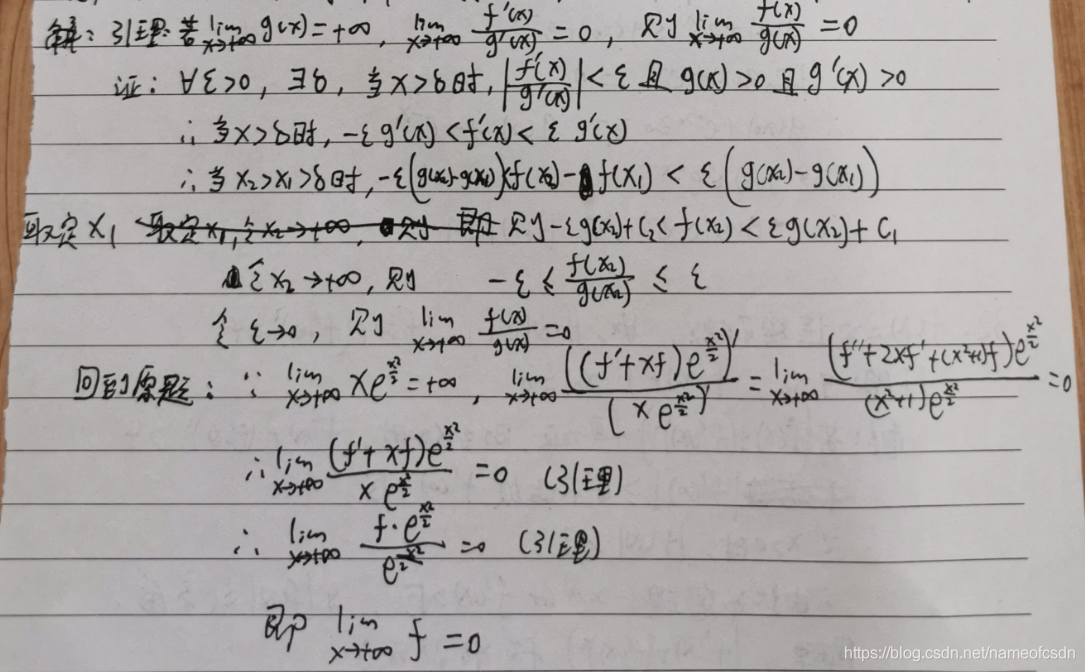 解：引理：若 lim_{x→+∞} g(x)=+∞， lim_{x→+∞} f'(x)/g'(x) = 0， 则 lim_{x→+∞} f(x)/g(x) = 0
证：∀ε>0，∃δ，当x>δ时，|f'(x)/g'(x)|<ε 且 g(x)>0 且 g'(x)>0
∴当x>δ时，-εg'(x)<f'(x)<εg'(x)
∴当x₂>x₁>δ时，-ε(g(x₂)-g(x₁))<f(x₂)-f(x₁)<ε(g(x₂)-g(x₁))
取定x₁ 则-εg(x₂)+C₂<f(x₂)<εg(x₂)+C₁
令x₂→+∞，则 -ε ≤ f(x₂)/g(x₂) ≤ ε
令ε→0，则 lim_{x→+∞} f(x)/g(x) = 0
回到原题：∵ lim_{x→+∞} xe^{x²/2}=+∞， lim_{x→+∞} ((f'+xf)e^{x²/2})'/(xe^{x²/2})' = lim_{x→+∞} (f''+2xf'+(x²+1)f)e^{x²/2}/(x²+1)e^{x²/2} = 0
∴ lim_{x→+∞} (f'+xf)e^{x²/2}/xe^{x²/2} = 0 (引理)
∴ lim_{x→+∞} f·e^{x²/2}/e^{x²/2} = 0 (引理)
即 lim_{x→+∞} f = 0
https://blog.csdn.net/nameofcsdn